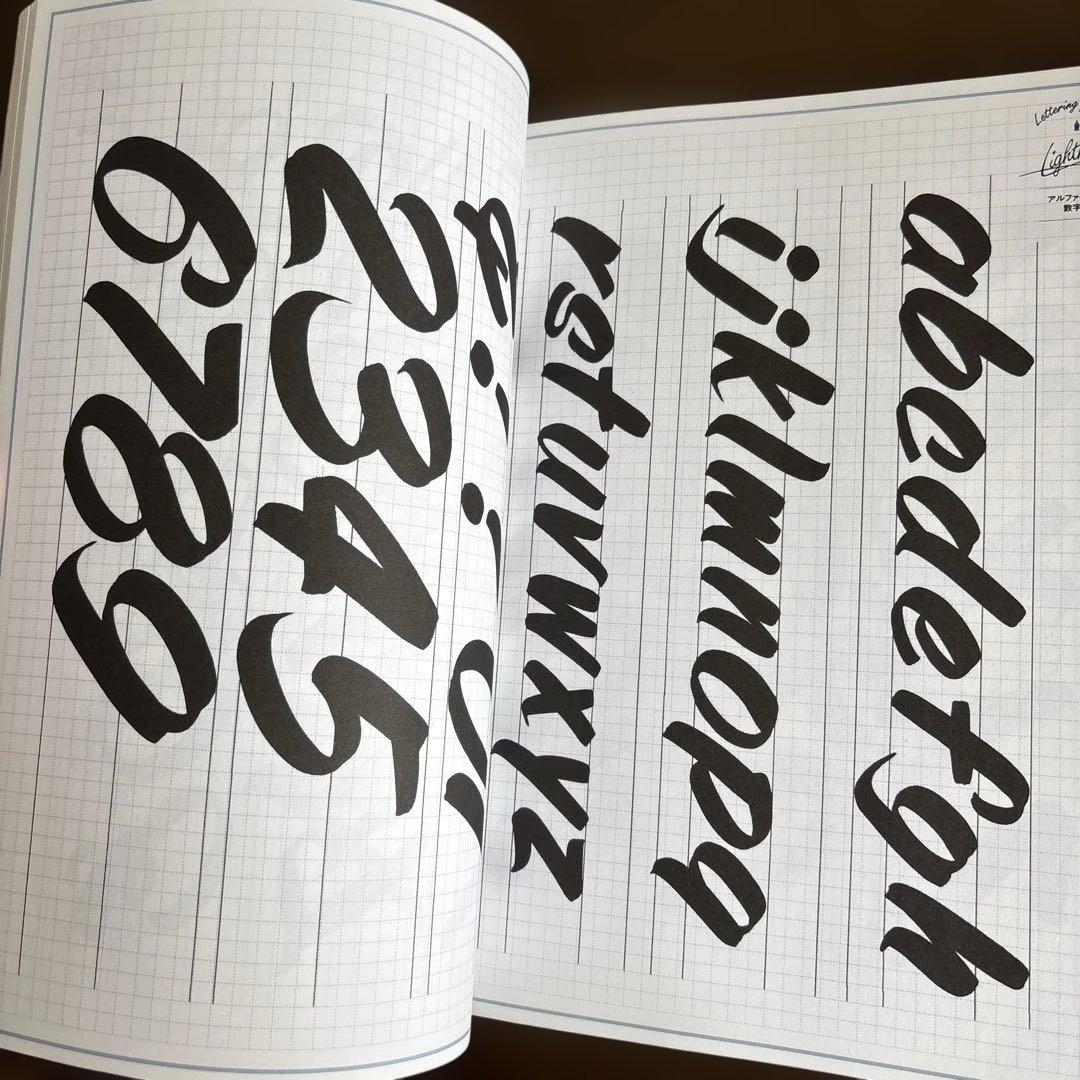 Lettering
数字
abcdefgh
ijklmnopq
rstuvwxyz
2345
6789